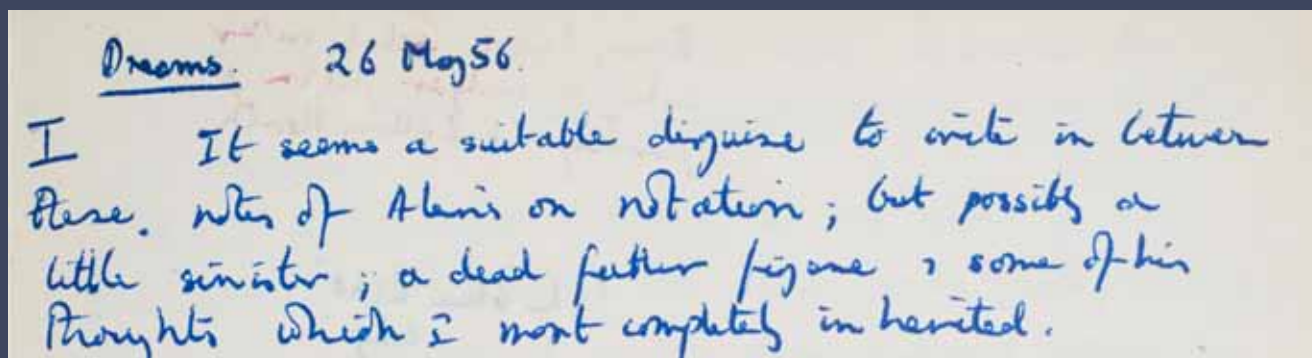 Dreams. 26 May 56.
I It seems a suitable disguise to write in between
these. notes of Alan's on notation; but possibly a
little sinister; a dead father figure & some of his
thoughts which I most completely inherited.